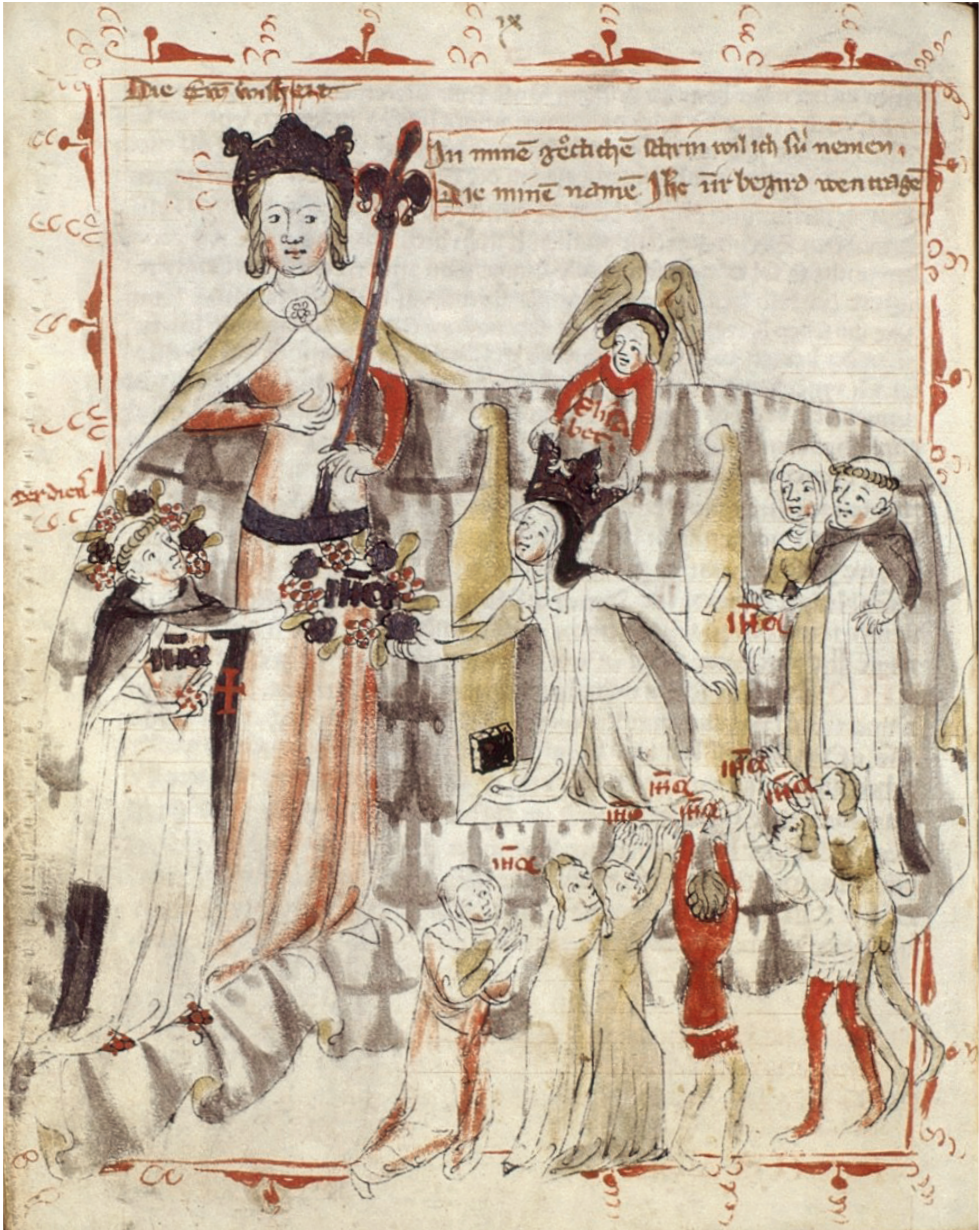 Die Ew̄ wisheit
Jn minē götlichē schirm wil ich sú nemen.
Die minē namē Jhc in ir begird wen tragē
bet
der dien̄
ihc
ihc
ihc
ihc
ihc
ihc
ihc
ihc
ihc
ihc